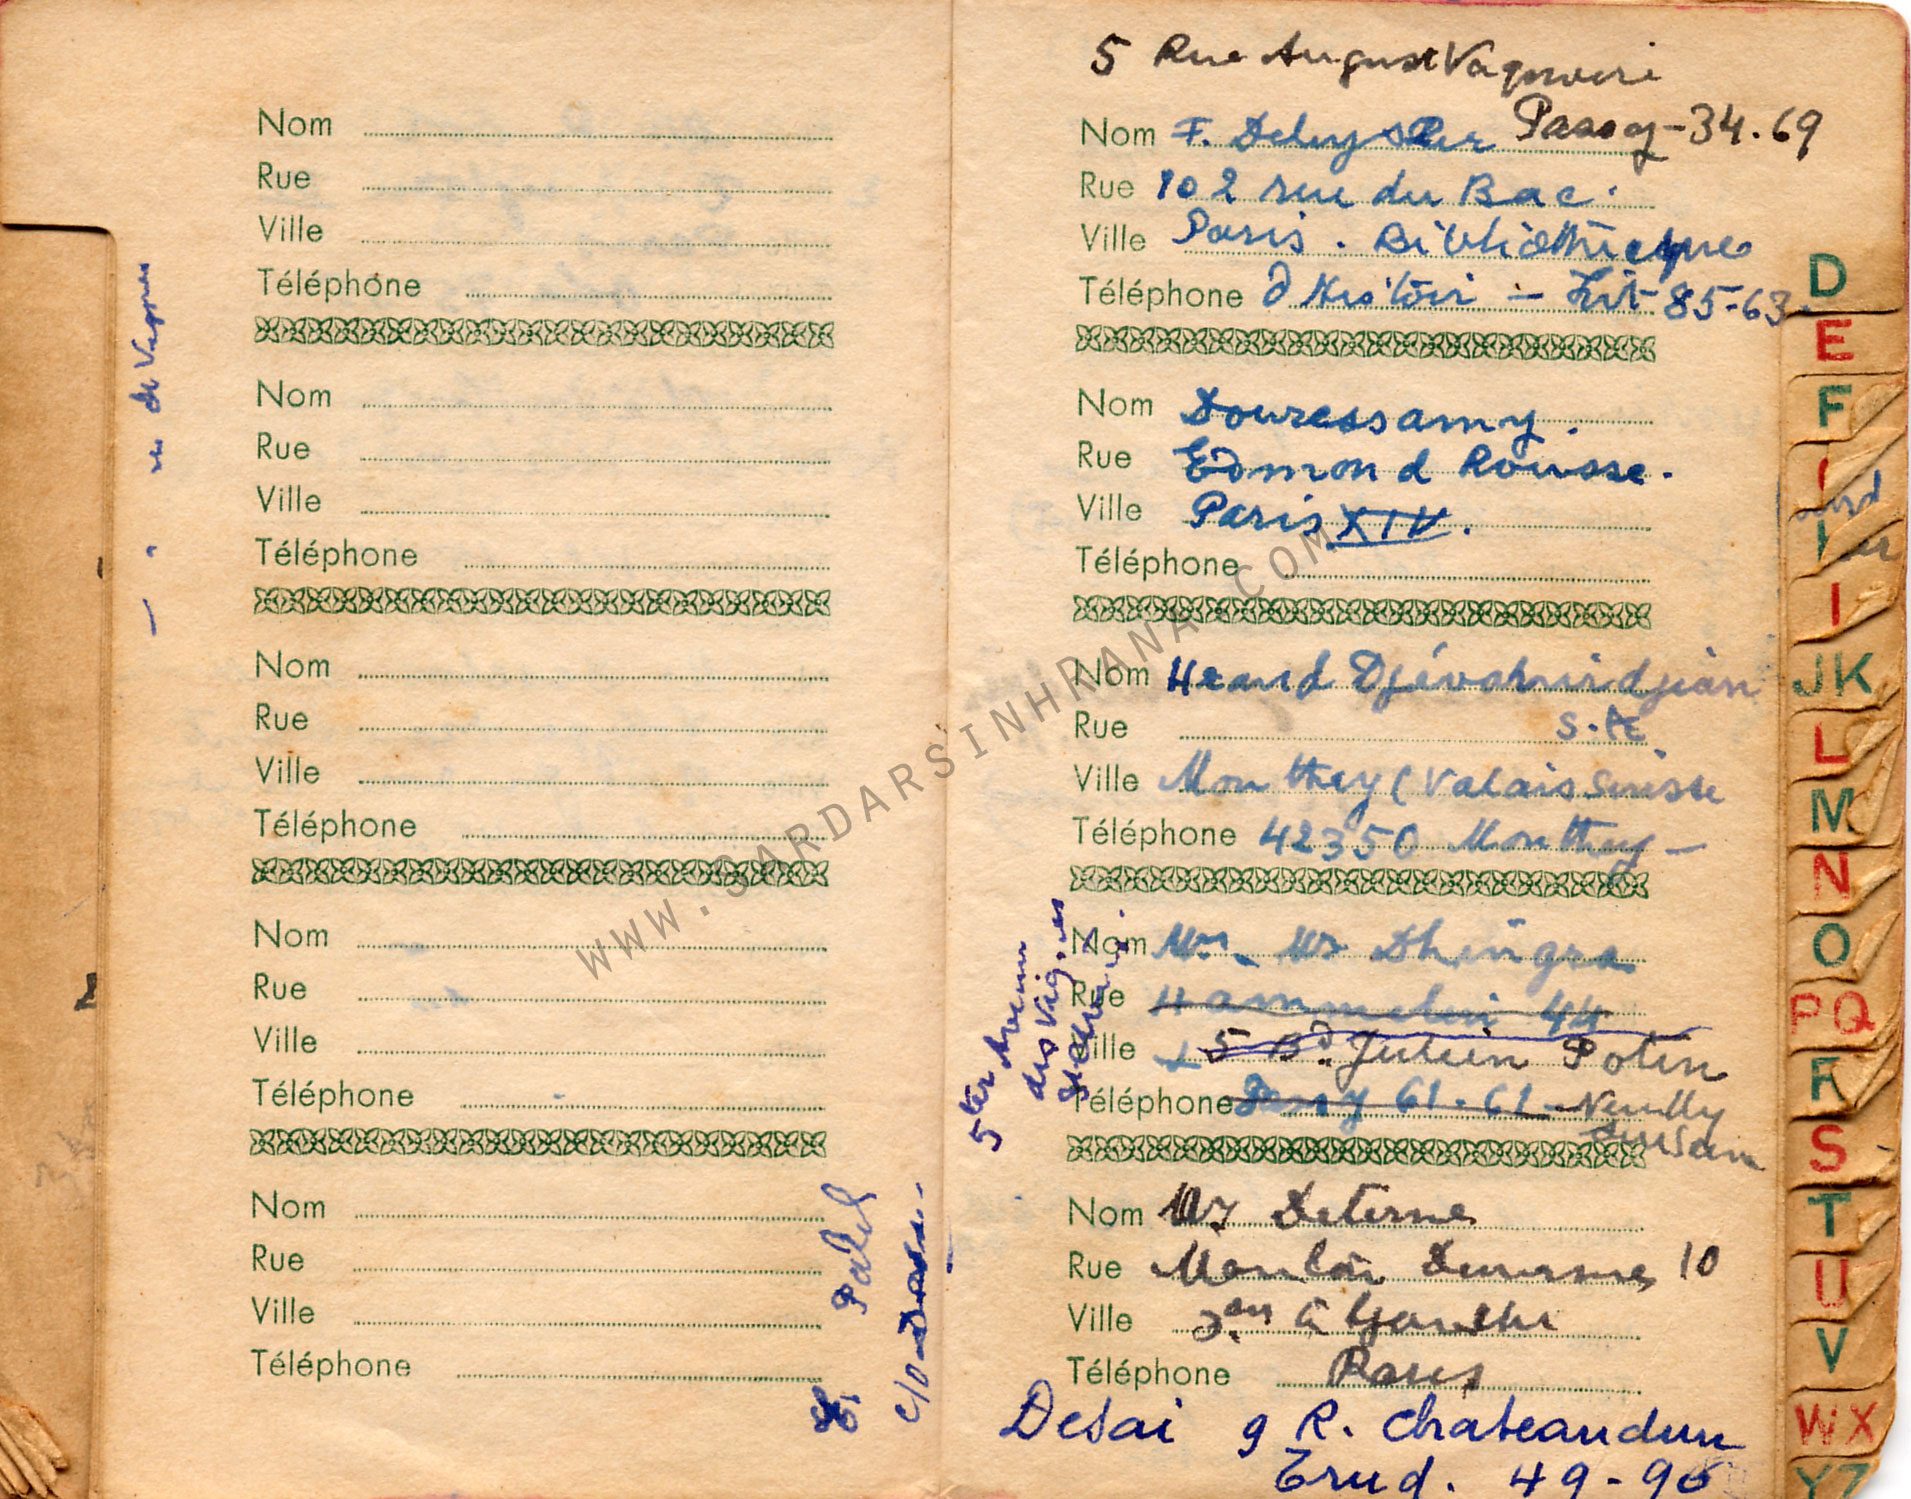 Nom
Rue
Ville
Téléphone
Nom
Rue
Ville
Téléphone
Nom
Rue
Ville
Téléphone
Nom
Rue
Ville
Téléphone
Nom
Rue
Ville
Téléphone
Patel
c/o
5 Rue August
Passy-34.69
Nom F.
Rue 102 rue du Bac.
Ville Paris. Bibliothieque
Téléphone d - Lit-85-63.
Nom Douressamy.
Rue Edmond Rousse.
Ville Paris XIV.
Téléphone
Nom Hrand Djévahirdjian
Rue S.A.
Ville Monthey (Valais Suisse
Téléphone 42350 Monthey-
Nom Mme - Mr Dhingra
Rue 44
Ville 5 Bd. Julien Potin
Téléphone 61.61- Neuilly
sur Seine
5 ter
des Vignes
Nom Mr
Rue 10
Ville
Téléphone Paris
Desai 9 R. Chateaudun
Trud. 49-90
D
E
F
I
JK
L
M
N
O
PQ
R
S
T
U
V
WX
YZ
WWW.SARDARSINHRANA.COM